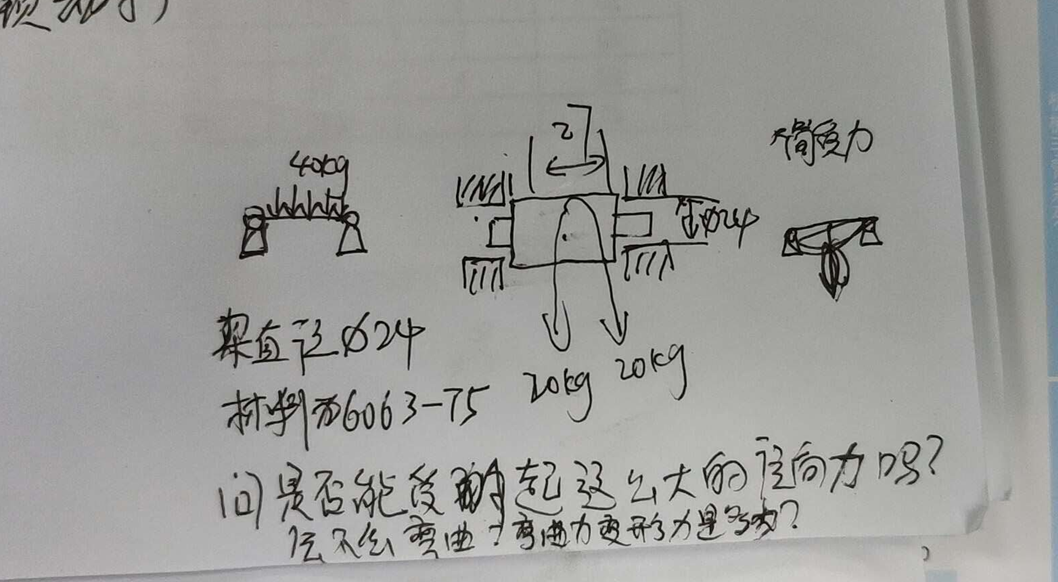 40kg
2
简受力
ø24
梁直径ø24
20kg 20kg
材料为6063-T5
问是否能受的起这么大的径向力吗?
会不会弯曲?弯曲力变形力是多少?